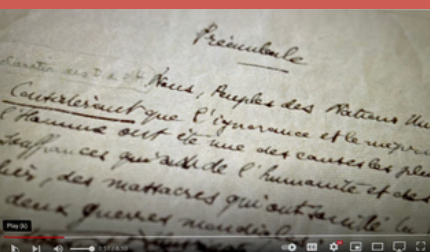 Préambule
Nous, Peuples des Nations Un
Considérant que l'ignorance et le mépris
l'Homme ont été une des causes les plus
souffrances de l'humanité et des
des massacres qui ont souillé
deux guerres mondiales
Play (k)